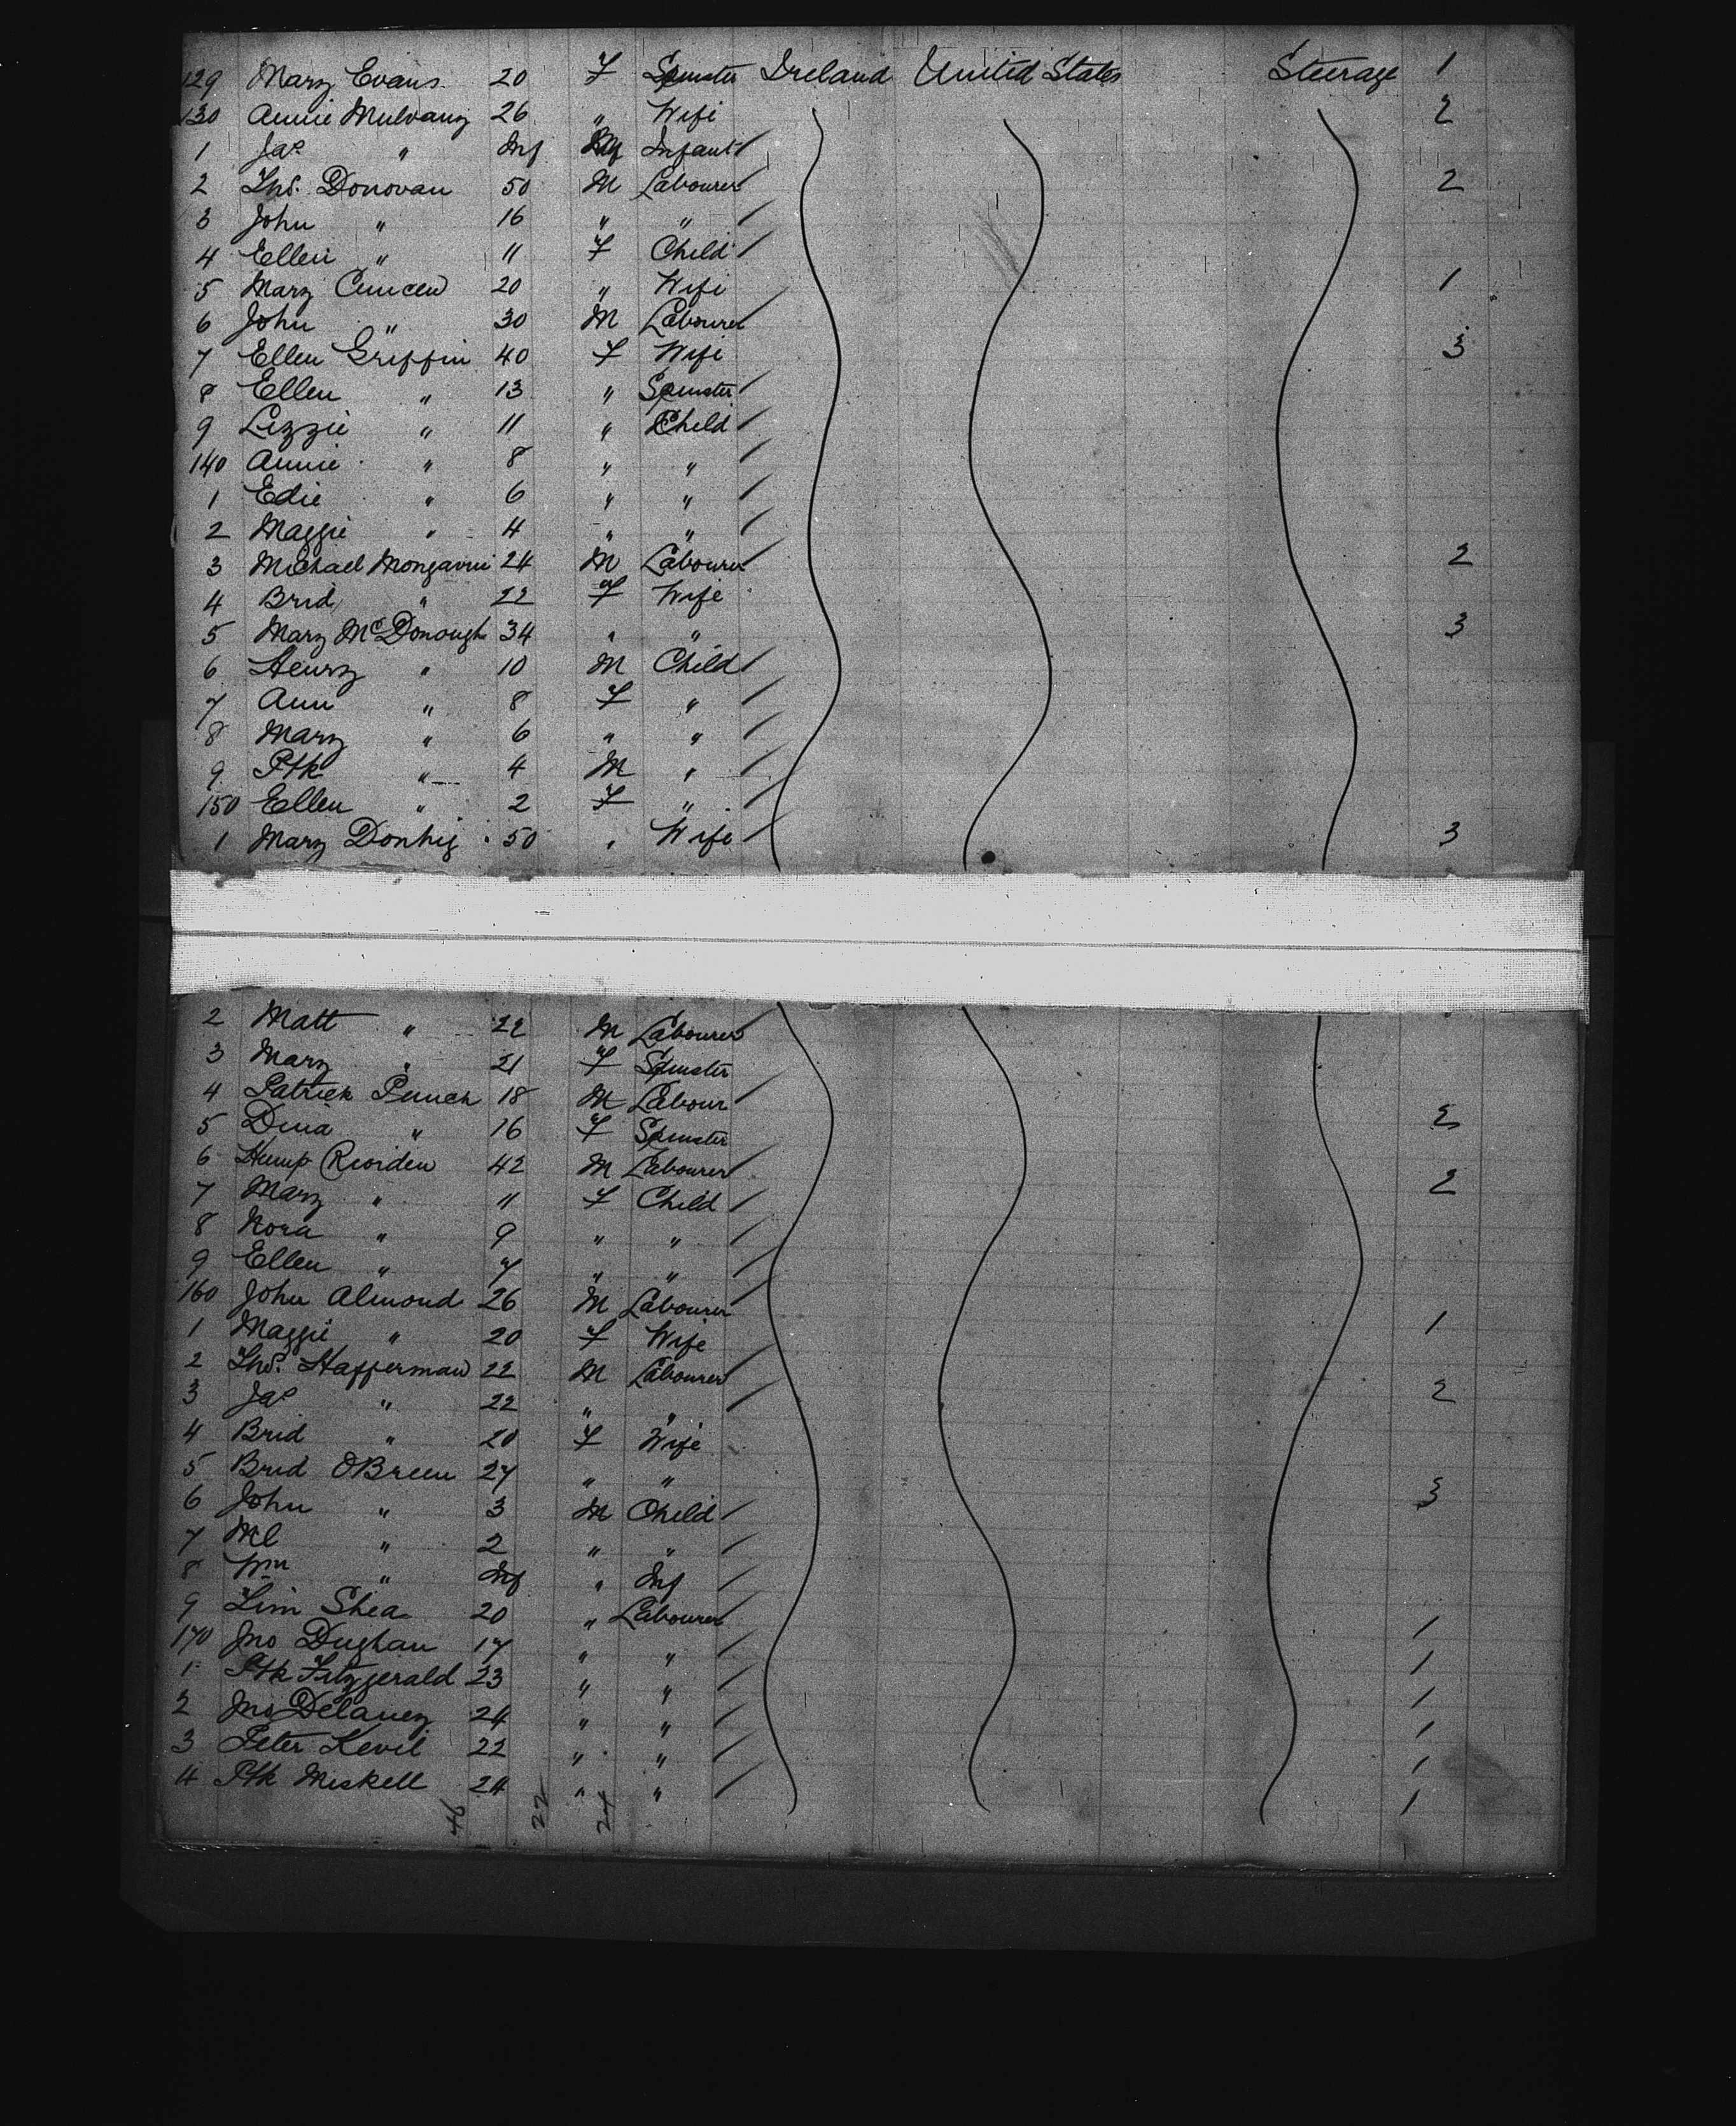 129 Mary Evans 20 F Spinster Ireland United States Steerage 1
130 Annie Mulvany 26 " Wife 2
1 Jas " Inf Infant
2 Thos. Donovan 50 M Labourer 2
3 John " 16 " "
4 Ellen " 11 F Child
5 Mary 20 " Wife 1
6 John " 30 M Labourer
7 Ellen Griffin 40 F Wife 3
8 Ellen " 13 " Spinster
9 Lizzie " 11 " Child
140 Annie " 8 " "
1 Edie " 6 " "
2 Maggie " 4 " "
3 Michael 24 M Labourer 2
4 Brid " 22 F Wife
5 Mary McDonough 34 " " 3
6 Henry " 10 M Child
7 Ann " 8 F "
8 Mary " 6 " "
9 Ptk " 4 M "
150 Ellen " 2 F "
1 Mary Donhig 50 " Wife 3
2 Matt " 22 M Labourer
3 Mary " 21 F Spinster
4 Patrick Punch 18 M Labour
5 Dina " 16 F Spinster 2
6 Hump Riorden 42 M Labourer 2
7 Mary " 11 F Child
8 Nora " 9 " "
9 Ellen " 7 " "
160 John Almond 26 M Labourer
1 Maggie " 20 F Wife 1
2 Thos. Hafferman 22 M Labourer
3 Jas " 22 " " 2
4 Brid " 20 F Wife
5 Brid OBrien 27 " "
6 John " 3 M Child 3
7 Ml " 2 " "
8 Wm " Inf " Inf
9 Tim Shea 20 " Labourer 1
170 Jno Dughan 17 " " 1
1 Ptk Fitzgerald 23 " " 1
2 Jno Delaney 24 " " 1
3 Peter Kevil 22 " " 1
4 Ptk Miskell 24 " " 1
46 22 24